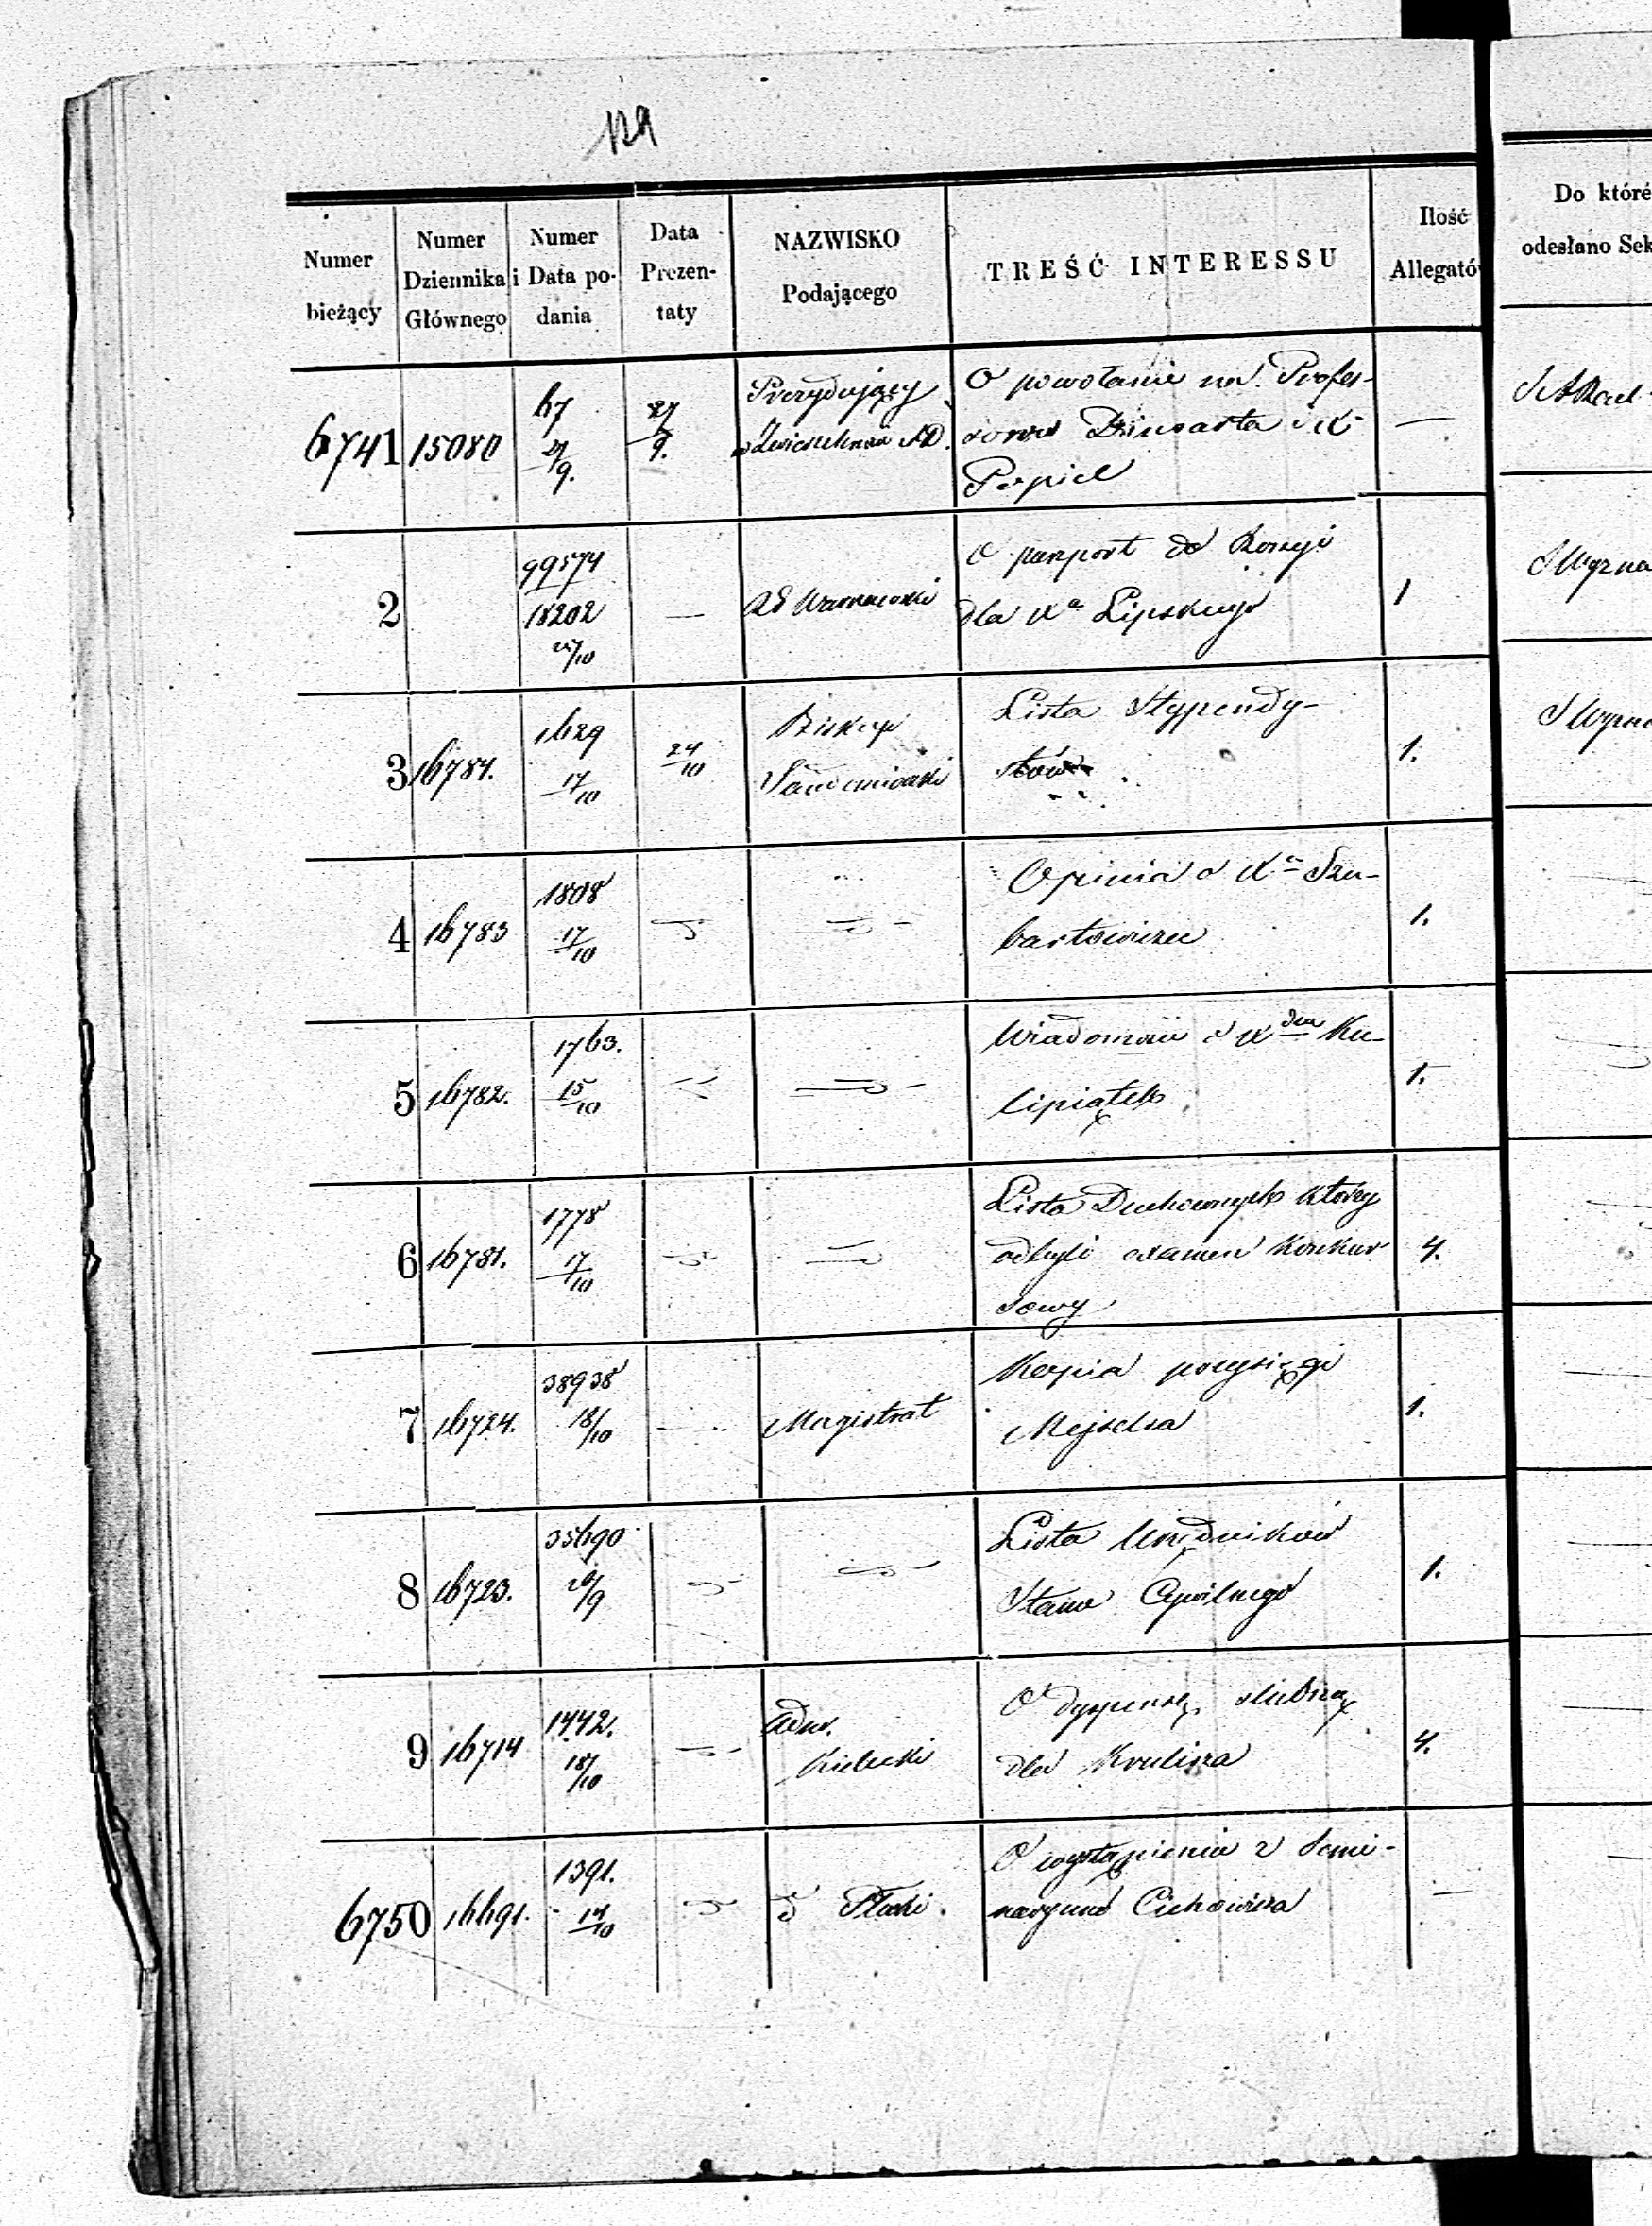 129
Numer bieżący
Numer Dziennika Głównego
Numer i Data podania
Data Prezentaty
NAZWISKO Podającego
TREŚĆ INTERESSU
Ilość
Do które
odesłano Sek
6741 15080 67 27/9. 27/9. Prezydujący O powołanie na Profes- —
sorów X
Popiel
2 99574 18202 21/10 — O paszport do Rossyi 1
dla Xa Lipskiego
3 16784. 1629 17/10 24/10 Biskup Lista Stypendy- 1.
Sandomierski stów
4 16783 1808 17/10 Opinia o Xu Szu- 1.
bartowiczu
5 16782. 1763. 15/10 Wiadomość o Ku- 1.
lipiątek
6 16781. 1778 17/10 Lista Duchownych którzy 4.
odbyli examen konkur
sowy
7 16724. 38938 18/10 Magistrat Kopia przysięgi 1.
Mejzelsa
8 16723. 35690 20/9 Lista Urzędników 1.
Stanu Cywilnego
9 16714 1442. 18/10 Adm. O dyspensę ślubną 4.
Kielecki dla Krulisza
6750 16691. 1391. 14/10 Płocki. O wystąpieniu z Semi- —
naryum Cichowicza